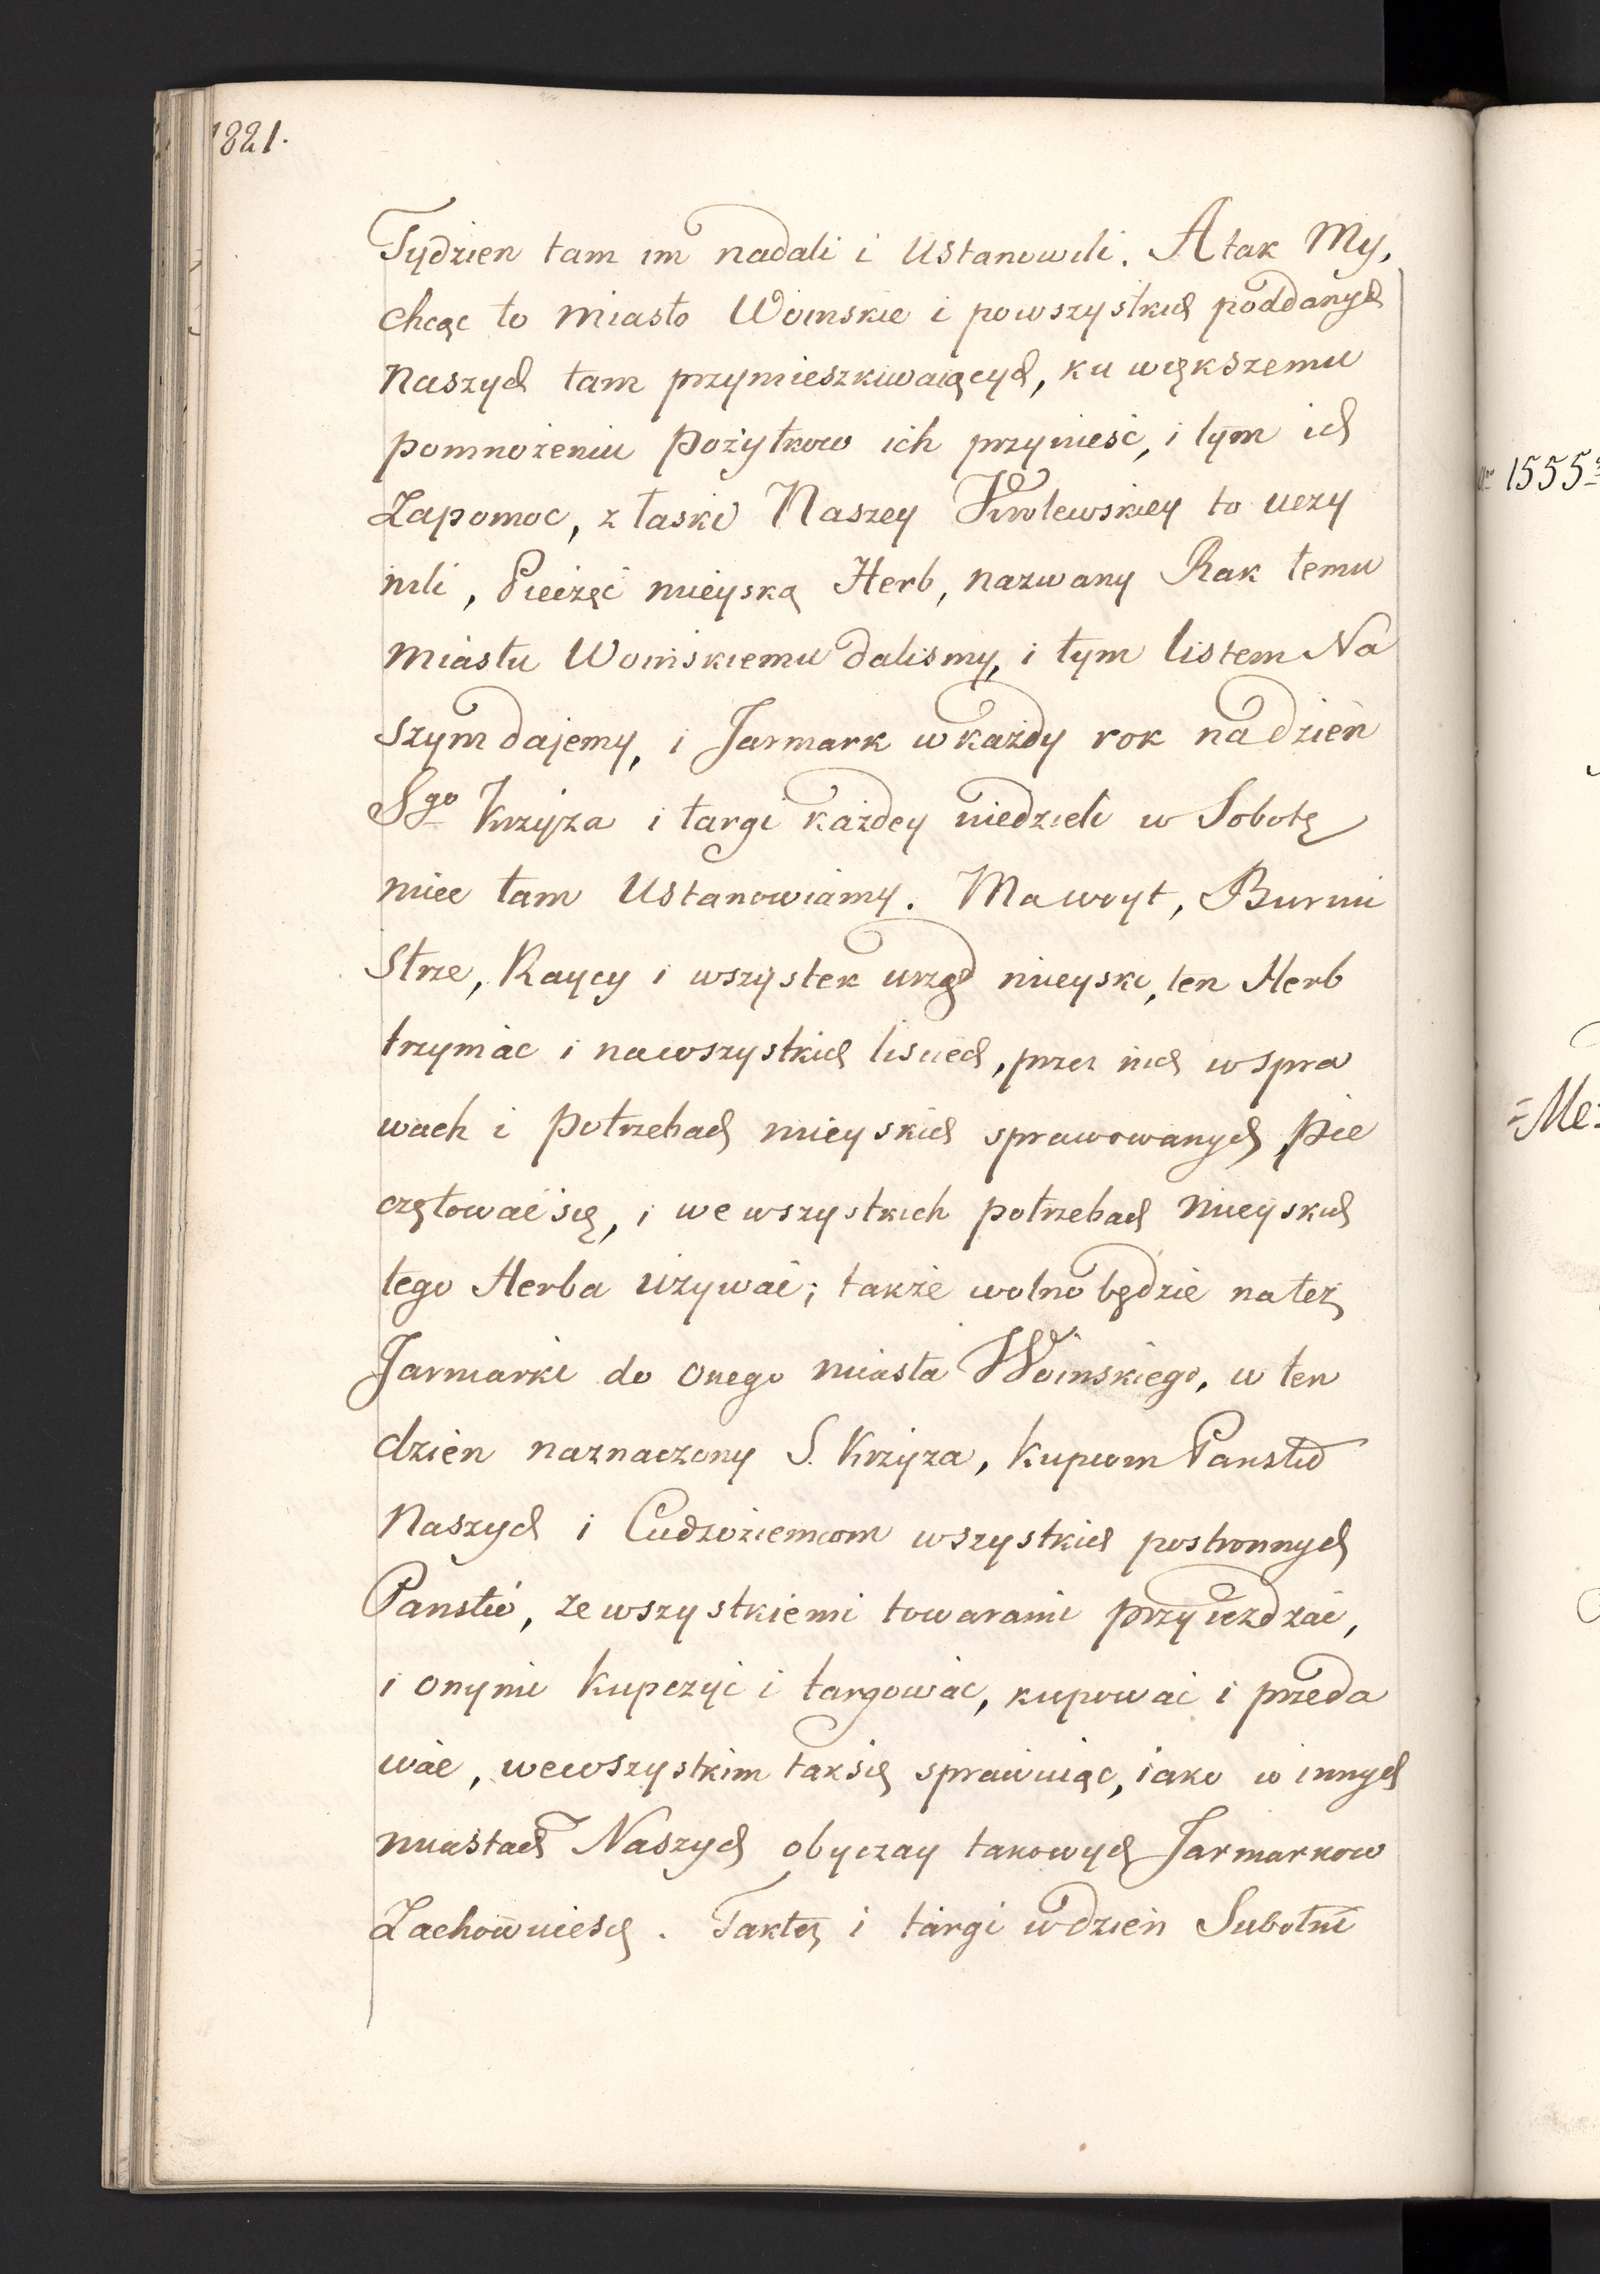 1821.
Tydzien tam im nadali i Ustanowili. A tak My,
chcąc to miasto Woinskie i powszystkich poddanych
Naszych tam przymieszkiwaiących, ku większemu
pomnożeniu Pożytkow ich przynieść, i tym ich
Zapomoc, z łaski Naszey Krolewskiey to uczy
nili, Pieczęć mieyską Herb, nazwany Rak temu
miastu Woińskiemu dalismy, i tym listem Na
szym dajemy, i Jarmark w każdy rok na dzień
Sgo Krzyża i targi każdey niedzieli w Sobotę
miec tam Ustanowiamy. Ma woyt, Burmi
strze, Raycy i wszystek urząd mieyski, ten Herb
trzymać i nawszystkich liściech, przez nich w spra
wach i Potrzebach mieyskich sprawowanych, Pie
czętować się, i we wszystkich potrzebach mieyskich
tego Herba używać; także wolno będzie na też
Jarmarki do onego miasta Woinskiego, w ten
dzień naznaczony S. Krzyża, Kupcom Państw
Naszych i Cudzoziemcom wszystkich postronnych
Państw, ze wszystkiemi towarami przyieżdzać,
i onymi kupczyć i targować, kupować i przeda
wać, wewszystkim taksię sprawuiąc, iako w innych
miastach Naszych obyczay takowych Jarmarkow
Zachowuiesię. Takteż i targi w dzień Subotni
1555
=Me=